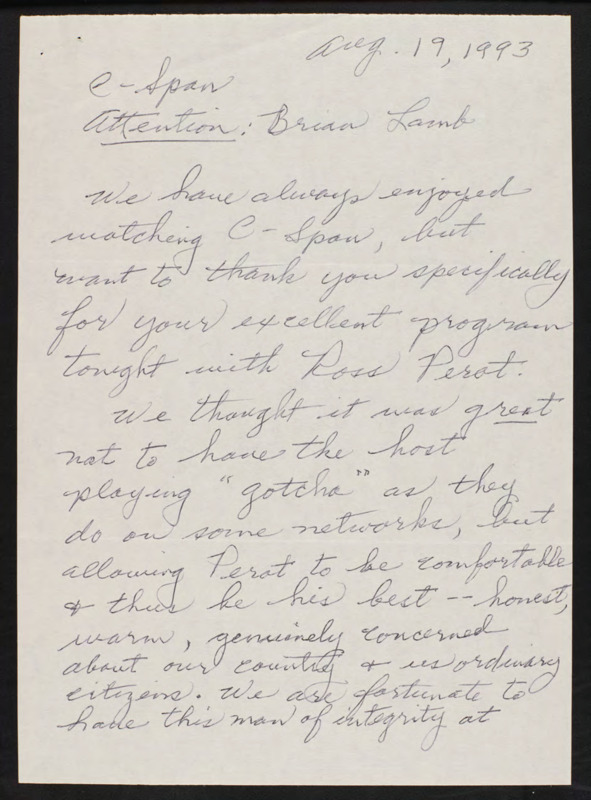 Aug. 19, 1993
C-Span
Attention: Brian Lamb
We have always enjoyed
watching C-Span, but
want to thank you specifically
for your excellent program
tonight with Ross Perot.
We thought it was great
not to have the host
playing "gotcha" as they
do on some networks, but
allowing Perot to be comfortable
& thus be his best -- honest,
warm, genuinely concerned
about our country & us ordinary
citizens. We are fortunate to
have this man of integrity at